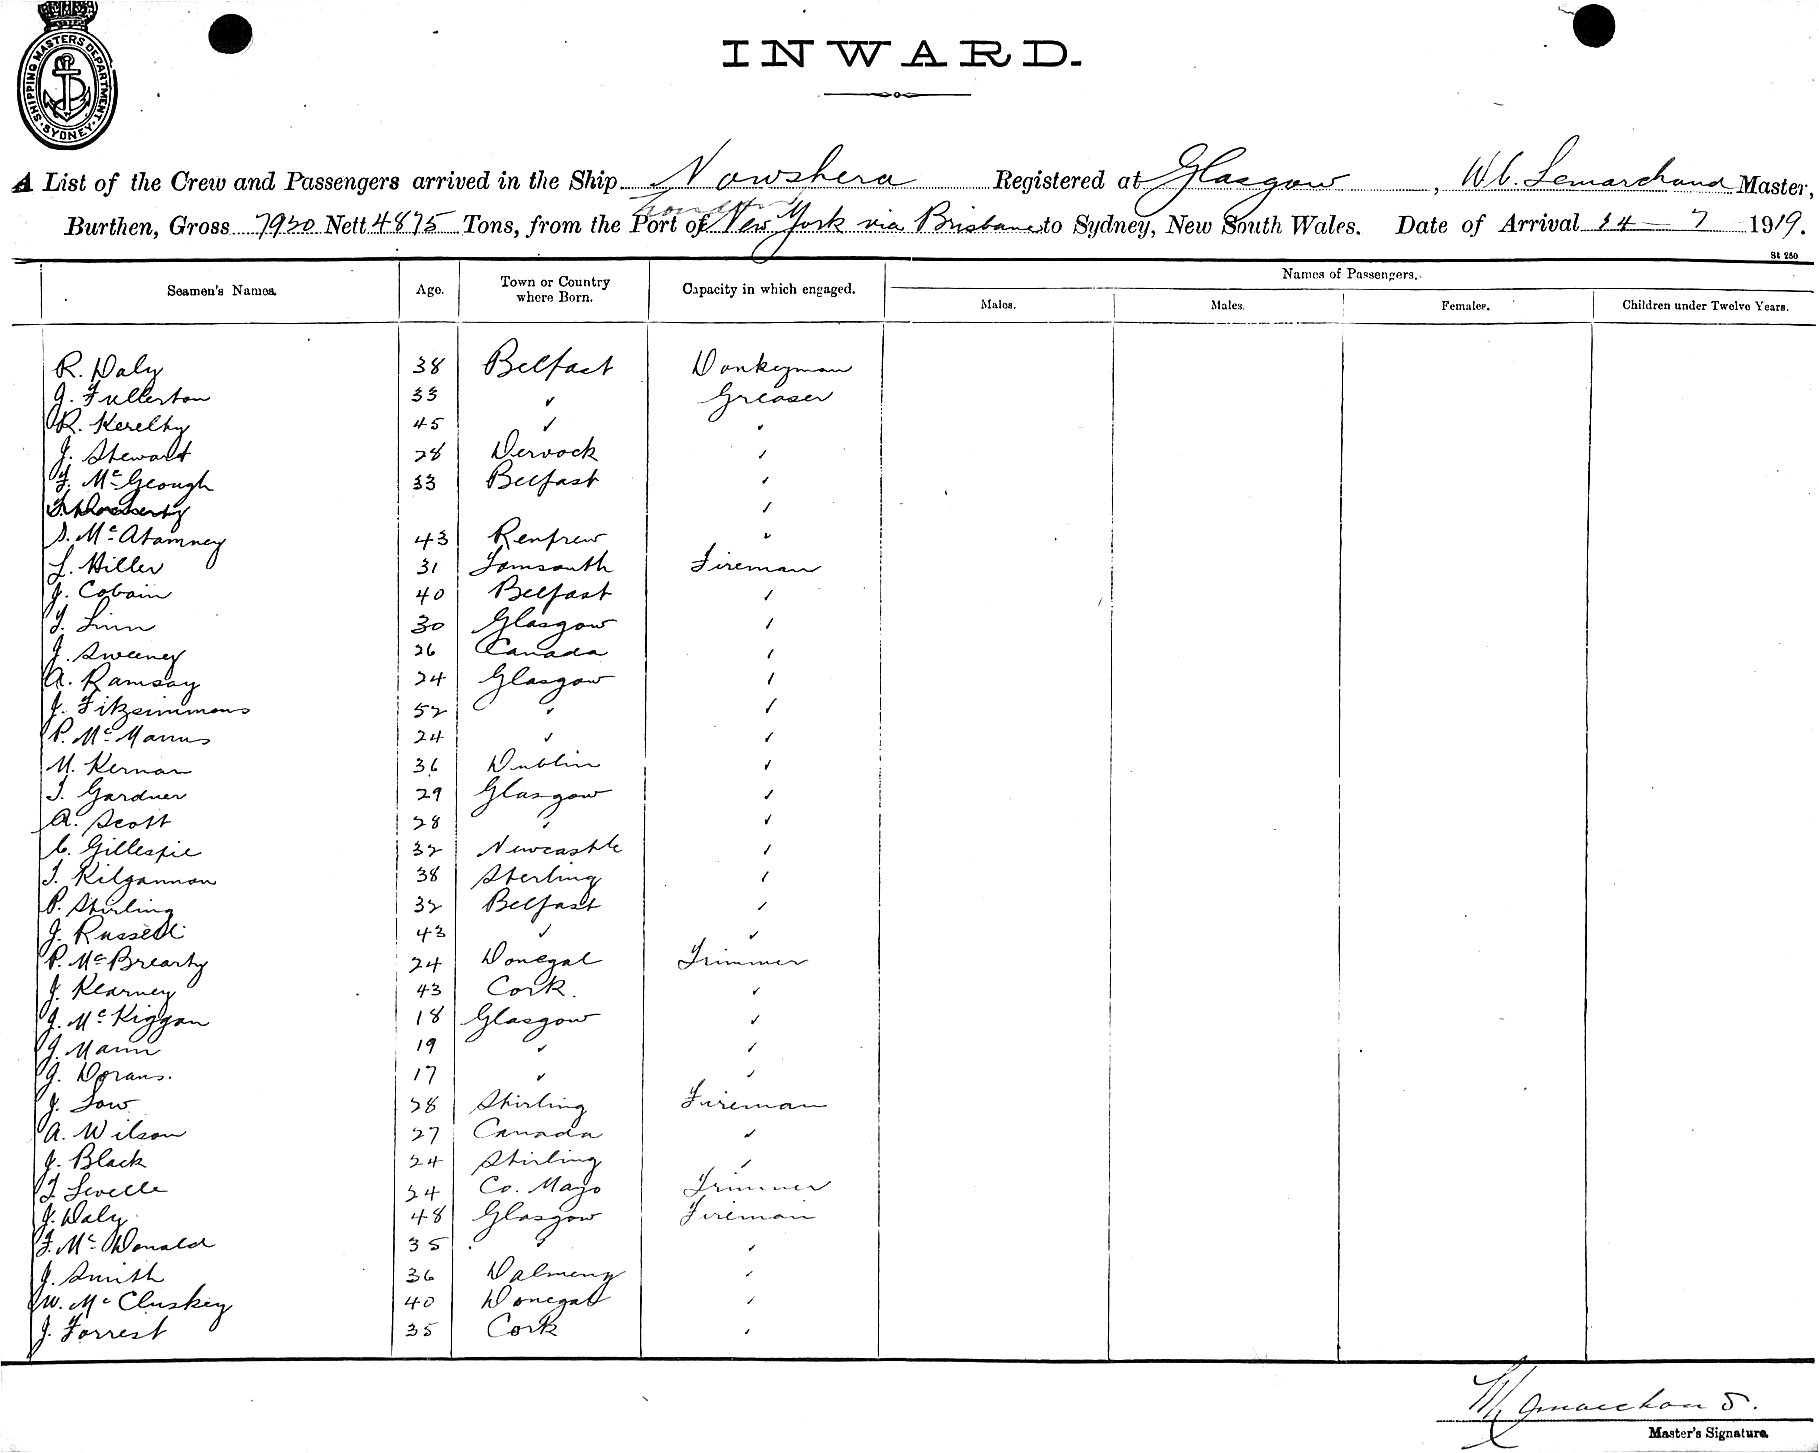 SHIPPING MASTERS DEPARTMENT. SYDNEY.
INWARD.
A List of the Crew and Passengers arrived in the Ship Nowshera Registered at Glasgow, W.C. Lemarchand Master,
Burthen, Gross 7920 Nett 4875 Tons, from the Port of New York via Brisbane to Sydney, New South Wales. Date of Arrival 14 - 7 1919.
St 250
Seamen's Names. Age. Town or Country where Born. Capacity in which engaged. Names of Passengers.
Males. Males. Females. Children under Twelve Years.
R. Daly 38 Belfast Donkeyman
J. Fullerton 33 " Greaser
R. Kerelby 45 " "
J. Stewart 28 Dervock "
F. McGeough 33 Belfast "
"
S. McAtamney 43 Renfrew "
L. Hiller 31 Fireman
J. Cobain 40 Belfast "
T. Linn 30 Glasgow "
J. Sweeney 26 Canada "
A. Ramsay 24 Glasgow "
J. Fitzsimmons 52 " "
P. McManus 24 " "
M. Kernan 36 Dublin "
T. Gardner 29 Glasgow "
A. Scott 28 " "
C. Gillespie 32 Newcastle "
T. Kilgannon 38 Sterling "
P. Stirling 32 Belfast "
J. Russell 43 " "
P. McBrearty 24 Donegal Trimmer
J. Kearney 43 Cork. "
J. McKiggan 18 Glasgow "
J. Mann 19 " "
J. Dorans. 17 " "
J. Low 28 Stirling Fireman
A. Wilson 27 Canada "
J. Black 24 Stirling "
T. Levelle 24 Co. Mayo Trimmer
J. Daly 48 Glasgow Fireman
F. McDonald 35 " "
J. Smith 36 Dalmeny "
W. McCluskey 40 Donegal "
J. Forrest 35 Cork "
Master's Signature.